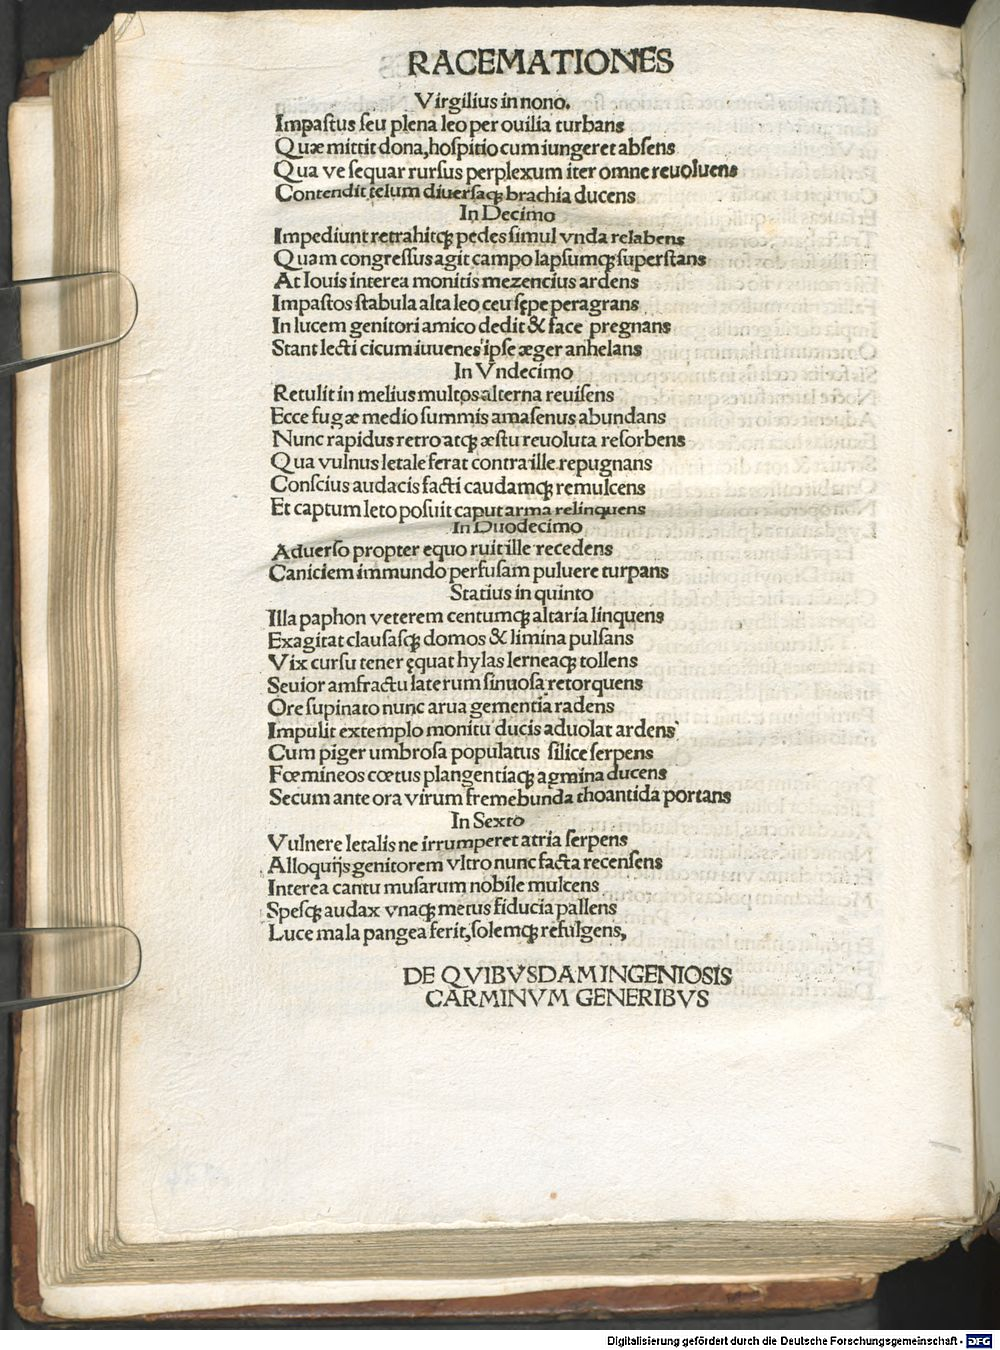 RACEMATIONES
Virgilius in nono.
Impaſtus ſeu plena leo per ouilia turbans
Quæ mittit dona, hoſpitio cum iungeret abſens
Qua ve ſequar rurſus perplexum iter omne reuoluens
Contendit telum diuerſaqꝫ brachia ducens
In Decimo
Impediunt retrahitqꝫ pedes ſimul vnda relabens
Quam congreſſus agit campo lapſumqꝫ ſuperſtans
At Iouis interea monitis mezencius ardens
Impaſtos ſtabula alta leo ceu ſępe peragrans
In lucem genitori amico dedit & face pregnans
Stant lecti cicum iuuenes ipſe æger anhelans
In Vndecimo
Retulit in melius multos alterna reuiſens
Ecce fugæ medio ſummis amaſenus abundans
Nunc rapidus retro atqꝫ æſtu reuoluta reſorbens
Qua vulnus letale ferat contra ille repugnans
Conſcius audacis facti caudamqꝫ remulcens
Et captum leto poſuit caput arma relinquens
In Duodecimo
Aduerſo propter equo ruit ille recedens
Caniciem immundo perfuſam puluere turpans
Statius in quinto
Illa paphon veterem centumqꝫ altaria linquens
Exagitat clauſaſqꝫ domos & limina pulſans
Vix curſu tener ęquat hylas lerneaqꝫ tollens
Seuior amfractu laterum ſinuoſa retorquens
Ore ſupinato nunc arua gementia radens
Impulit extemplo monitu ducis aduolat ardens
Cum piger umbroſa populatus ſilice ſerpens
Fœmineos cœtus plangentiaqꝫ agmina ducens
Secum ante ora virum fremebunda thoantida portans
In Sexto
Vulnere letalis ne irrumperet atria ſerpens
Alloquijs genitorem vltro nunc facta recenſens
Interea cantu muſarum nobile mulcens
Speſqꝫ audax vnaqꝫ metus fiducia pallens
Luce mala pangea ferit, ſolemqꝫ refulgens,
DE QVIBVSDAM INGENIOSIS
CARMINVM GENERIBVS
Digitalisierung gefördert durch die Deutsche Forschungsgemeinschaft - DFG